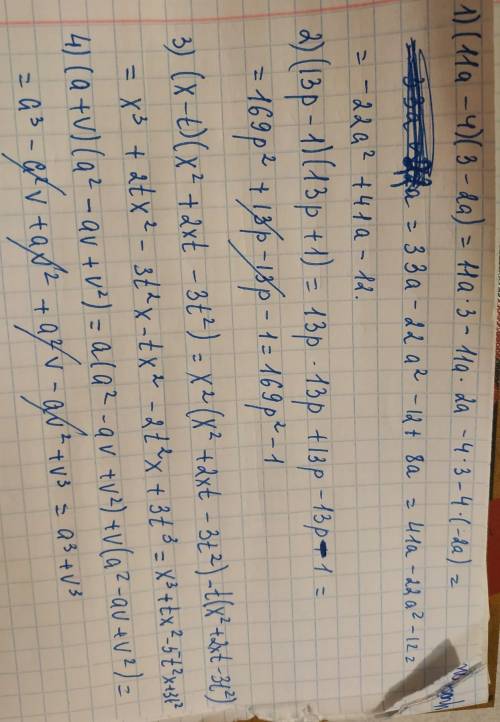 1) (11a - 4)(3 - 2a) = 11a · 3 - 11a · 2a - 4 · 3 - 4 · (-2a) =
= 33a - 22a² - 12 + 8a = 41a - 22a² - 12 =
= -22a² + 41a - 12.
2) (13p - 1)(13p + 1) = 13p · 13p + 13p - 13p - 1 =
= 169p² + 13p - 13p - 1 = 169p² - 1
3) (x - t)(x² + 2xt - 3t²) = x²(x² + 2xt - 3t²) - t(x² + 2xt - 3t²)
= x³ + 2tx² - 3t²x - tx² - 2t²x + 3t³ = x³ + tx² - 5t²x + 3t³
4) (a + v)(a² - av + v²) = a(a² - av + v²) + v(a² - av + v²) =
= a³ - a²v + av² + a²v - av² + v³ = a³ + v³